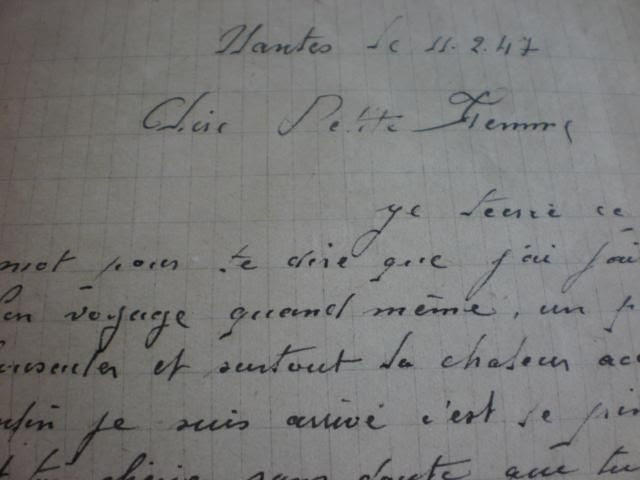 Nantes le 11.2.47
Chère Petite Femme
je t'écris ce
mot pour te dire que j'ai fai
bon voyage quand même, un p
et surtout la chaleur acc
enfin je suis arrivé c'est le prin
et toi chérie sans doute que tu